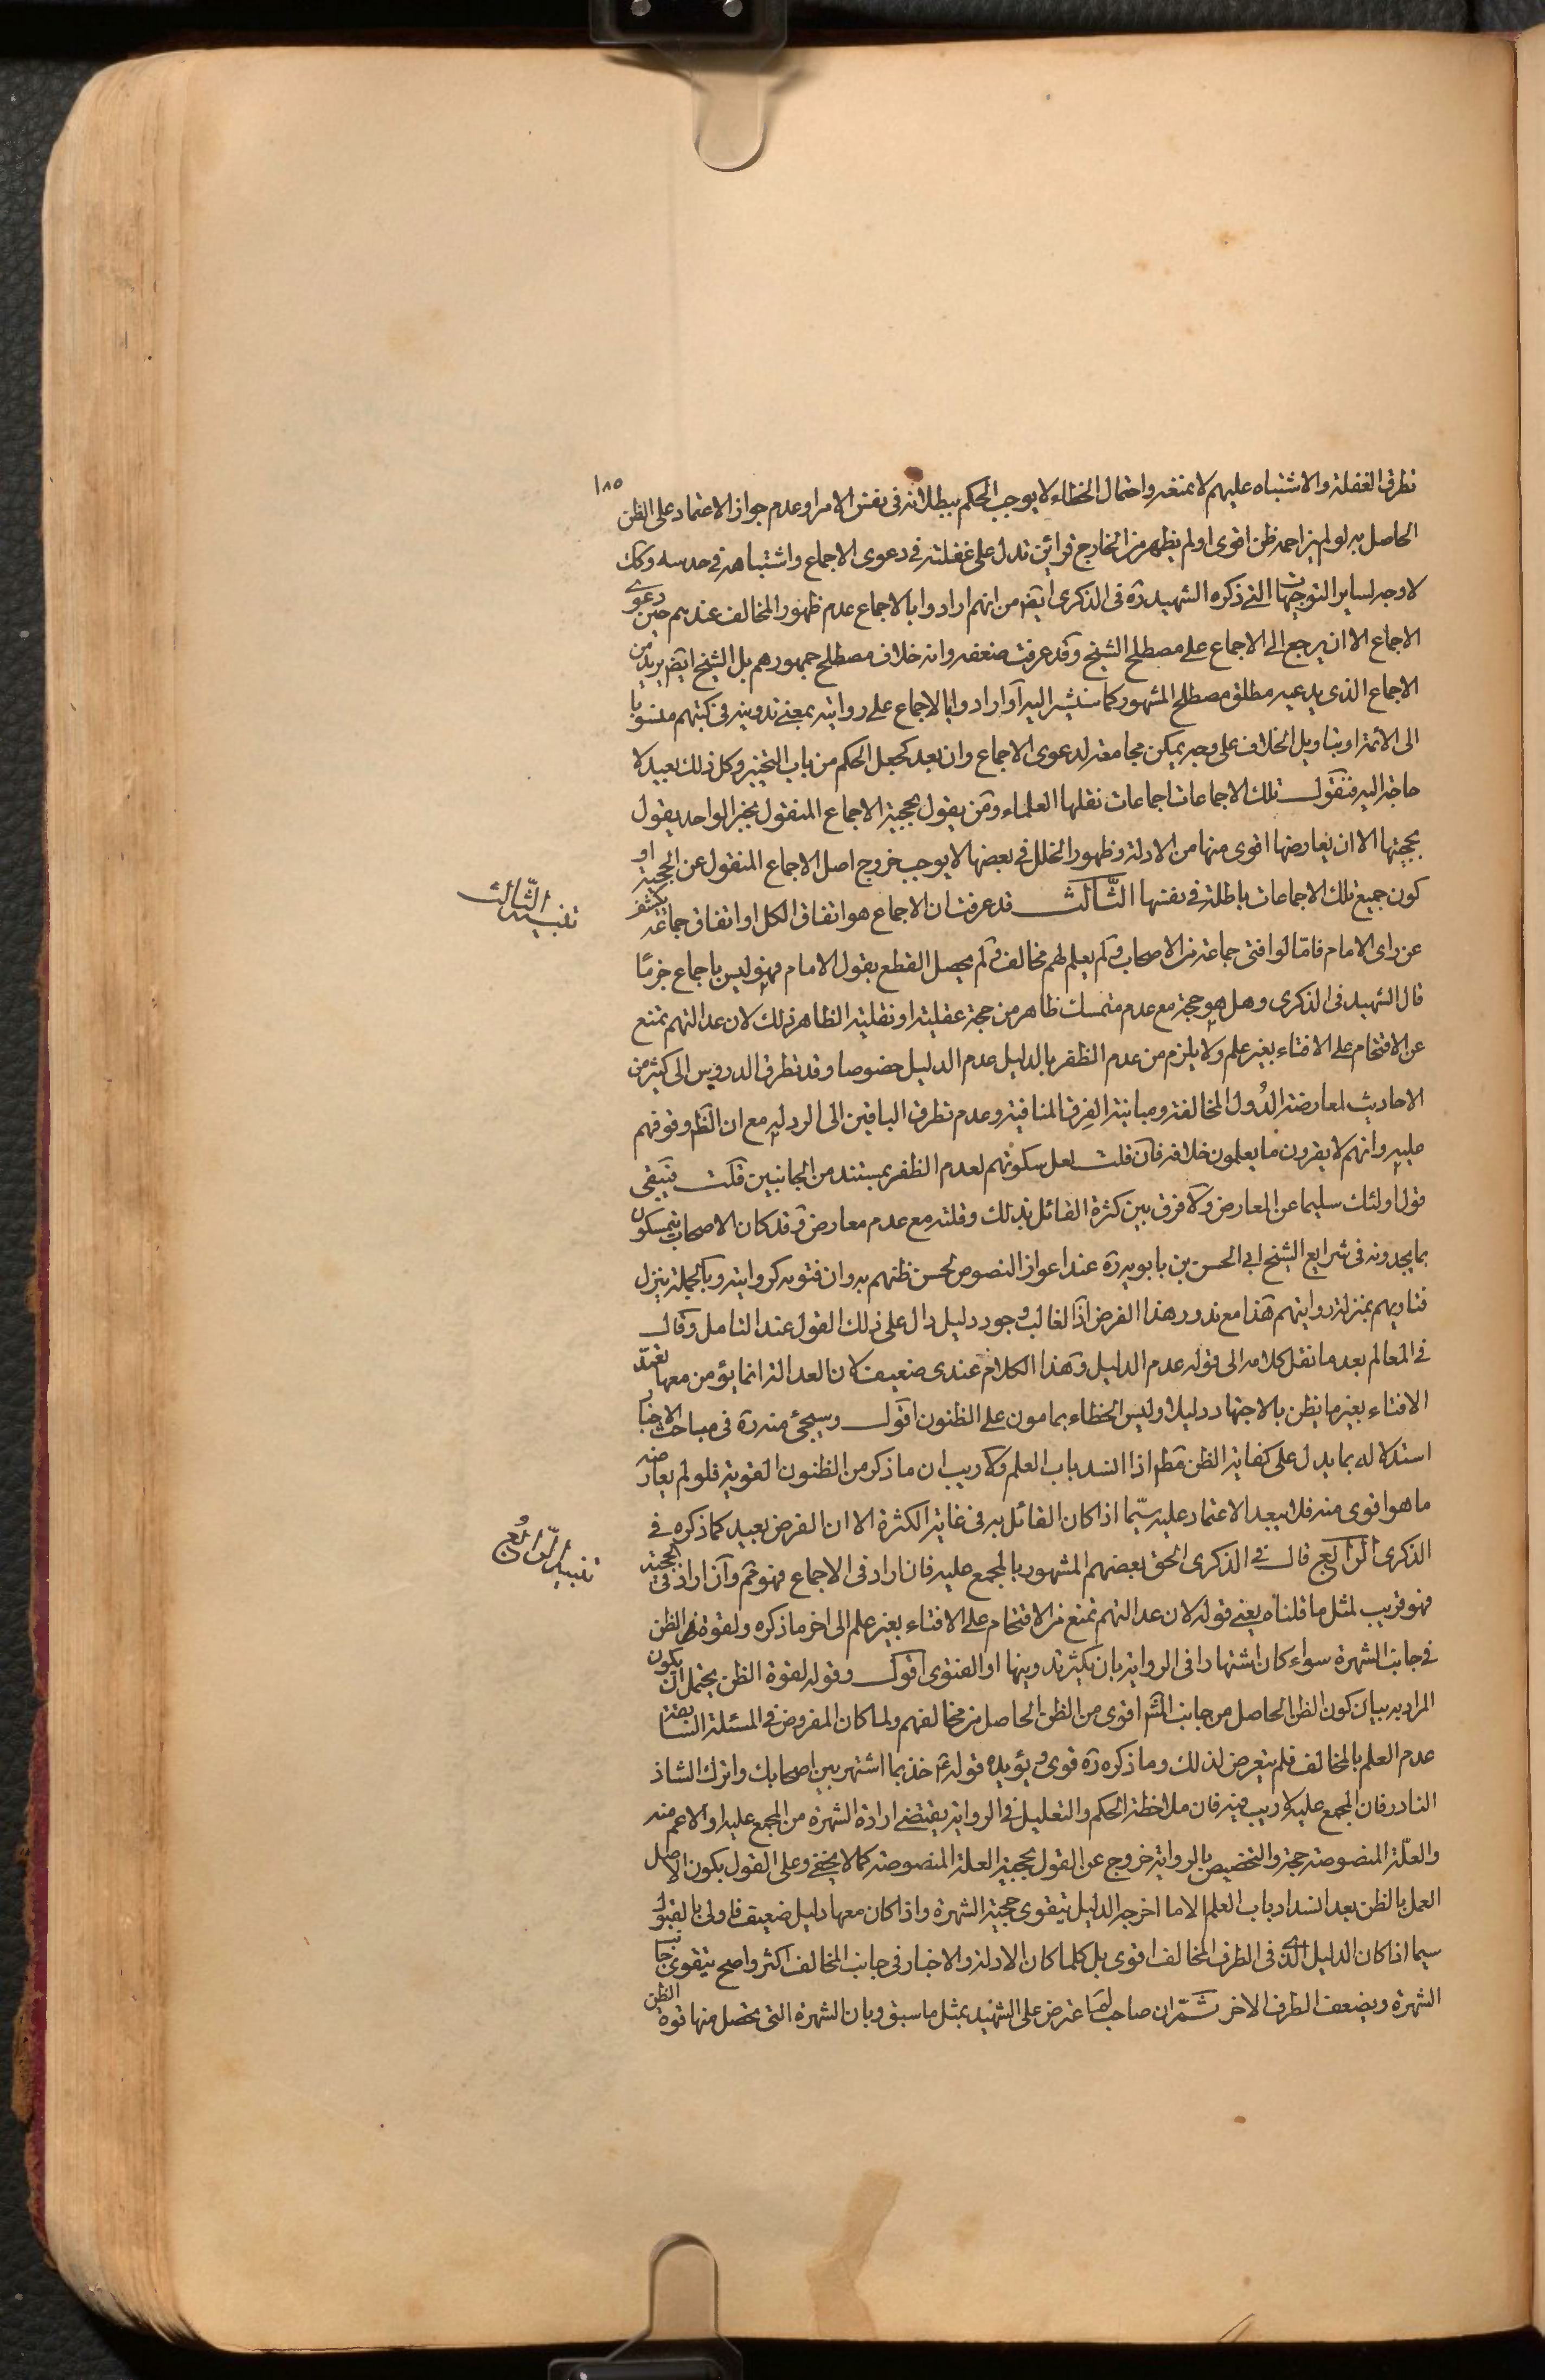 ١٨٥
تطرق الغفلة والاشتباه عليهم لا يمنعه واحتمال الخطاء لا يوجب الحكم ببطلانه فى نفس الامر او عدم جواز الاعتماد على الظن
الحاصل به لو لم يزاحمه ظن اقوى او لم يظهر من الخارج قرائن تدل على غفلته فى دعوى الاجماع واشتباهه فى حدسه وكك
لا وجه لساير التوجيهات التى ذكره الشهيد ره فى الذكرى ايضا من انهم ارادوا بالاجماع عدم ظهور المخالف عندهم حين دعوى
الاجماع الا ان يرجع الى الاجماع على مصطلح الشيخ وقد عرفت ضعفه وانه خلاف مصطلح جمهورهم بل الشيخ ايضا يريد من
الاجماع الذى يدعيه مطلق مصطلح المشهور كما سنشير اليه او ارادوا بالاجماع على روايته بمعنى تدوينه فى كتبهم منسوبا
الى الائمة او بتاويل الخلاف على وجه يمكن مجامعته لدعوى الاجماع وان بعد كجعل الحكم من باب التخيير وكل ذلك بعيد لا
حاجة اليه فنقول تلك الاجماعات اجماعات نقلها العلماء ومن يقول بحجية الاجماع المنقول بخبر الواحد يقول
بحجيتها الا ان يعارضها اقوى منها من الادلة وظهور الخلل فى بعضها لا يوجب خروج اصل الاجماع المنقول عن الحجية او
كون جميع تلك الاجماعات باطلة فى نفسها الثالث قد عرفت ان الاجماع هو اتفاق الكل او اتفاق جماعة يكشف
تنبيه الثالث
عن راى الامام فاما لو افتى جماعة من الاصحاب ولم يعلم لهم مخالف ولم يحصل القطع بقول الامام فهو ليس باجماع جزما
قال الشهيد فى الذكرى وهل هو حجة مع عدم متمسك ظاهر من حجة عقلية او نقلية الظاهر ذلك لان عدالتهم تمنع
عن الاقتحام على الافتاء بغير علم ولا يلزم من عدم الظفر بالدليل عدم الدليل خصوصا وقد تطرق الدروس الى كثير من
الاحاديث لمعارضة الدول المخالفة ومباينة الفرق المنافية وعدم تطرق الباقين الى الرد له مع ان الظ وقوفهم
عليه وانهم لا يقرون ما يعلمون خلافه فان قلت لعل سكوتهم لعدم الظفر بمستند من الجانبين قلت فيبقى
قول اولئك سليما عن المعارض ولا فرق بين كثرة القائل بذلك وقلته مع عدم معارض وقد كان الاصحاب يتمسكون
بما يجدونه فى شرايع الشيخ ابى الحسن بن بابويه ره عند اعواز النصوص لحسن ظنهم به وان فتويه كروايته وبالجملة ينزل
فتاويهم بمنزلة روايتهم هذا مع ندور هذا الفرض اذ الغالب وجود دليل دال على ذلك القول عند التامل وقال
فى المعالم بعد ما نقل كلامه الى قوله عدم الدليل وهذا الكلام عندى ضعيف لان العدالة انما يؤمن معها تعمد
الافتاء بغير ما يظن بالاجتهاد دليلا وليس الخطاء بمامون على الظنون اقول وسيجئ منه ره فى مباحث الاخبار
استدلاله بما يدل على كفاية الظن مطم اذا انسد باب العلم ولا ريب ان ما ذكر من الظنون القوية فلو لم يعارضه
ما هو اقوى منه فلا يبعد الاعتماد عليه سيما اذا كان القائل به فى غاية الكثرة الا ان الفرض بعيد كما ذكره فى
الذكرى الرابع قال فى الذكرى الحق بعضهم المشهور بالمجمع عليه فان اراد فى الاجماع فهو مم وان اراد فى الحجية
تنبيه الرابع
فهو قريب لمثل ما قلناه يعنى قوله لان عدالتهم تمنع من الاقتحام على الافتاء بغير علم الى اخر ما ذكره ولقوة الظن
فى جانب الشهرة سواء كان اشتهارا فى الرواية بان يكثر تدوينها او الفتوى اقول وقوله لقوة الظن يحتمل ان يكون
المراد به بيان كون الظن الحاصل من جانب الشهرة اقوى من الظن الحاصل من مخالفهم ولما كان المفروض فى المسئلة السابقة
عدم العلم بالمخالف فلم يتعرض لذلك وما ذكره ره قوى ويؤيده قوله ع خذ بما اشتهر بين اصحابك واترك الشاذ
النادر فان المجمع عليه لا ريب فيه فان ملاحظة الحكم والتعليل فى الرواية يقتضى ارادة الشهرة من المجمع عليه او الاعم منه
والعلة المنصوصة حجة والتخصيص بالرواية خروج عن القول بحجية العلة المنصوصة كما لا يخفى وعلى القول بكون الاصل
العمل بالظن بعد انسداد باب العلم الا ما اخرجه الدليل يتقوى حجية الشهرة واذا كان معها دليل ضعيف فاولى بالقبول
سيما اذا كان الدليل الذى فى الطرف المخالف اقوى بل كلما كان الادلة والاخبار فى جانب المخالف اكثر واصح يتقوى جانب
الشهرة ويضعف الطرف الاخر ثم ان صاحب لم اعترض على الشهيد بمثل ما سبق وبان الشهرة التى يحصل منها قوة الظن